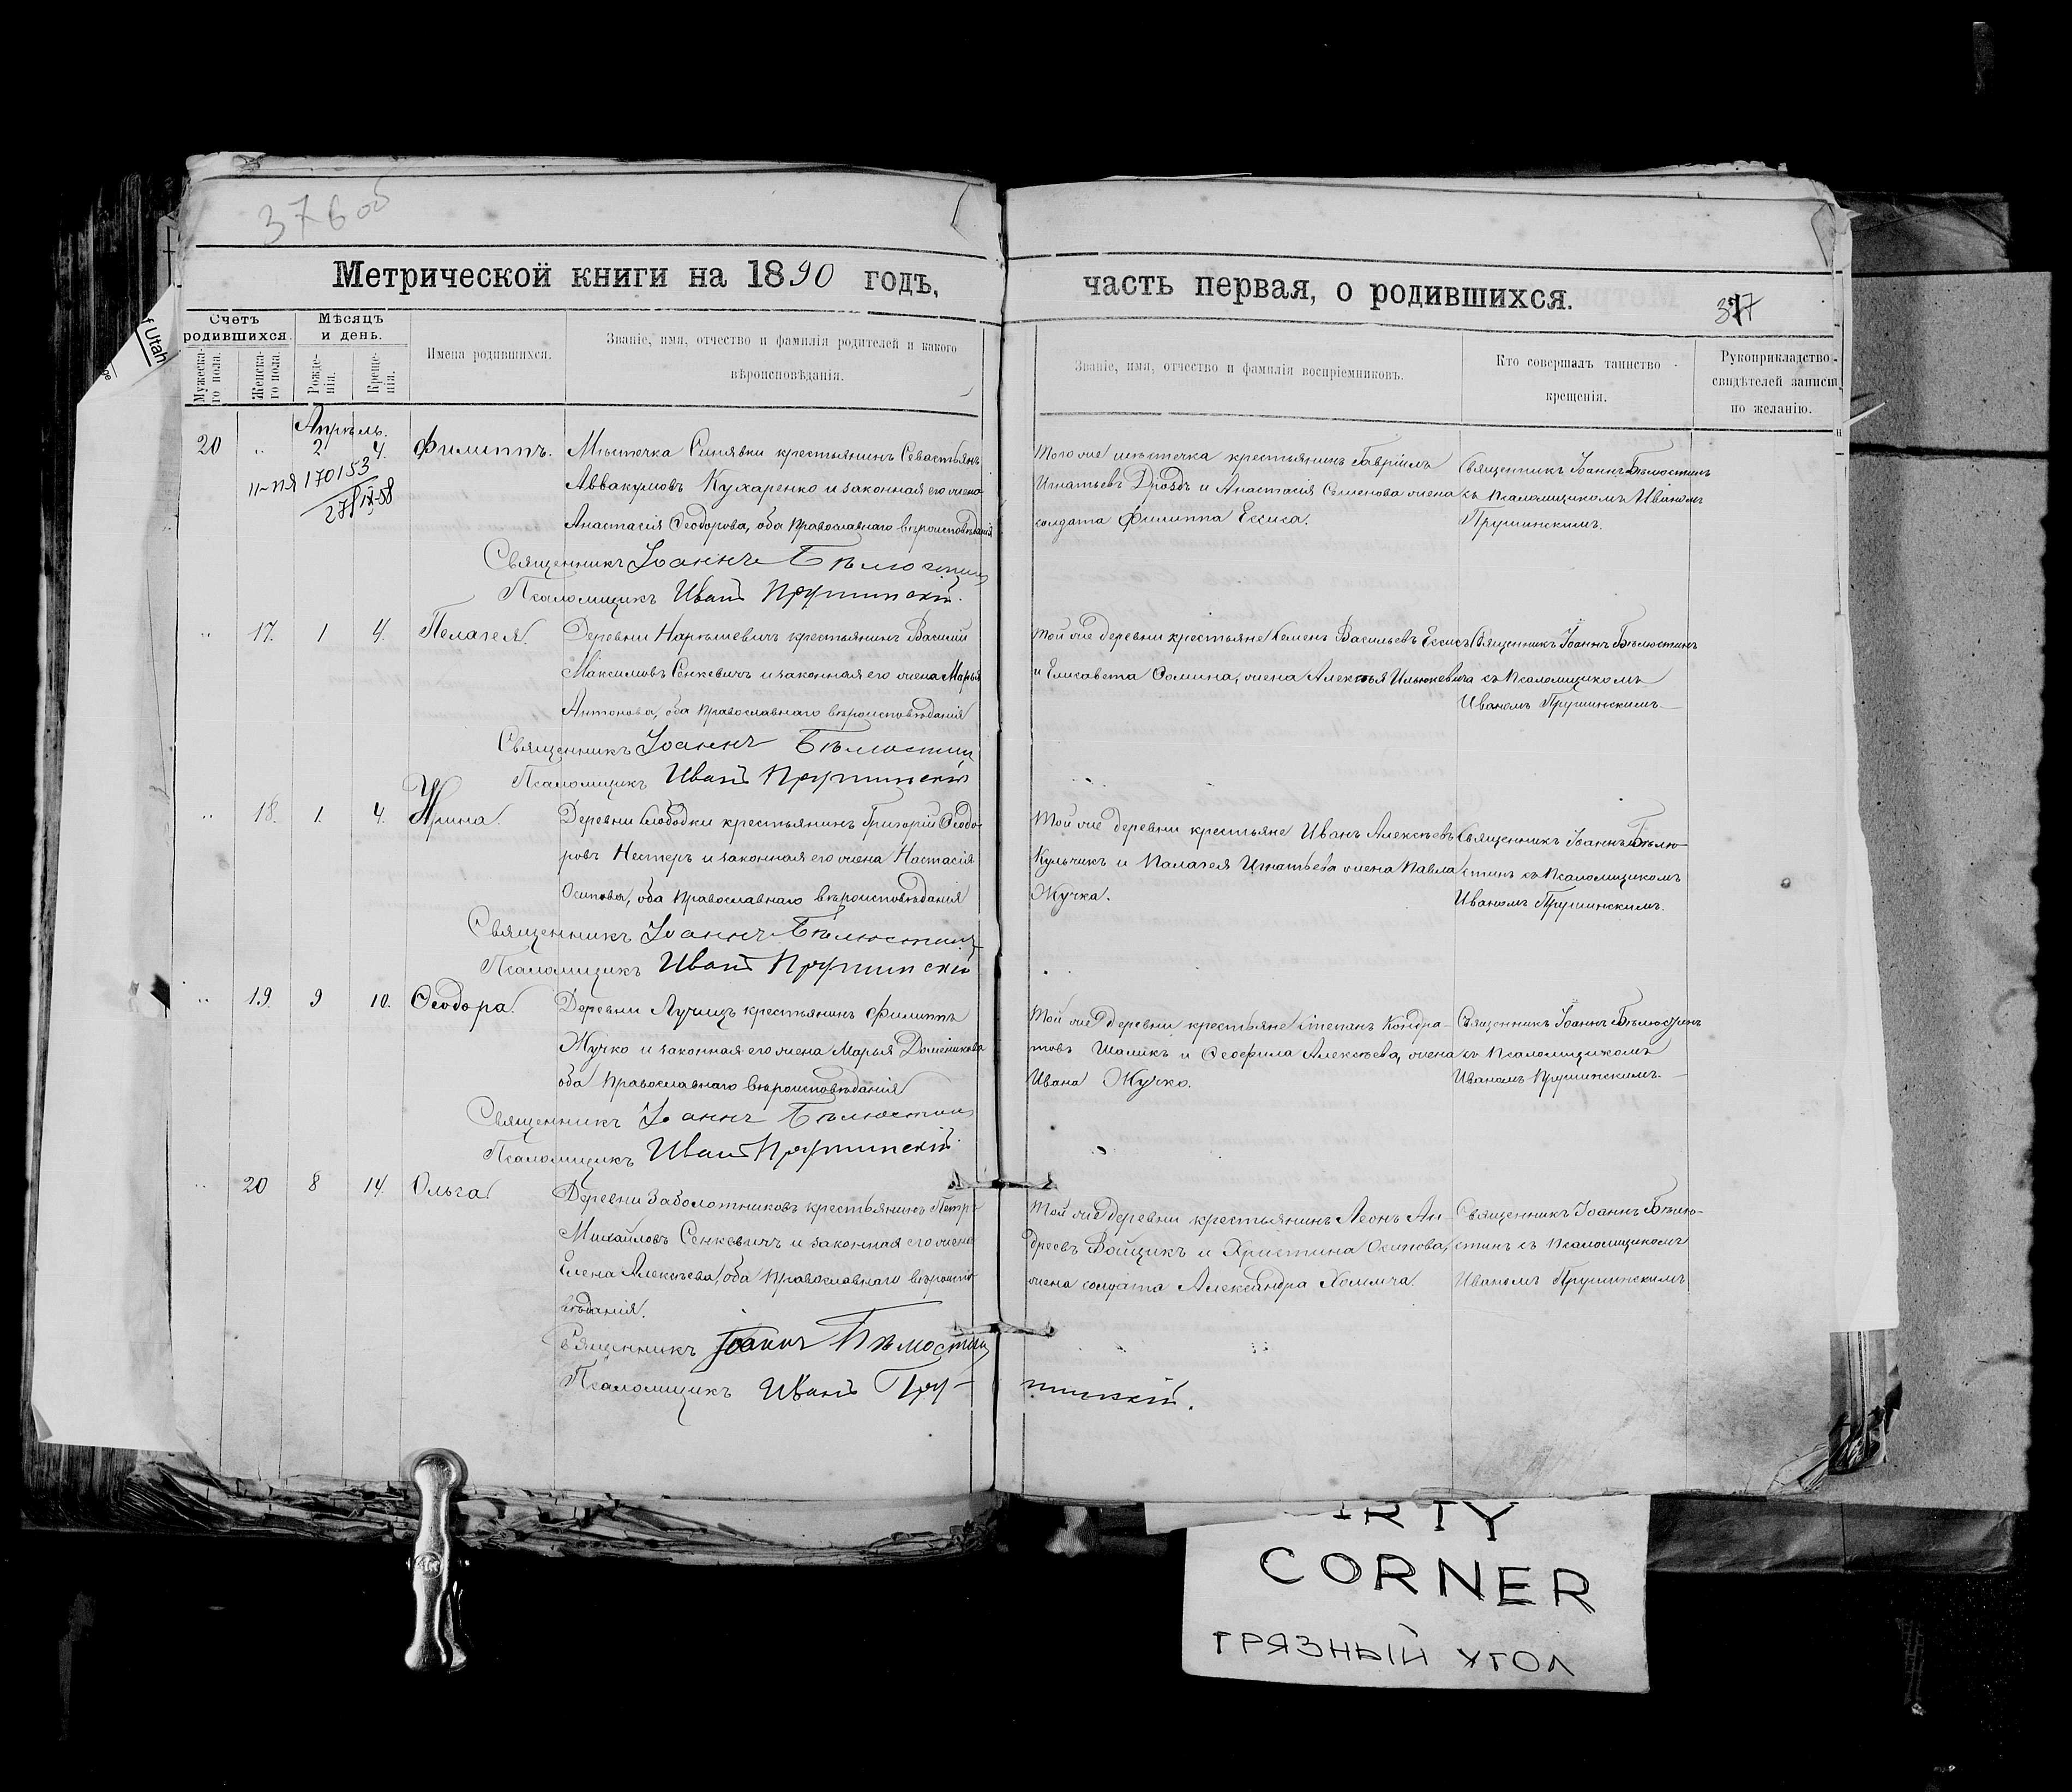 376 об
Метрической книги на 1890 годъ,
часть первая, о родившихся.
377
Счетъ родившихся.
Мѣсяцъ и день.
Мужеска-го пола.
Женска-го пола.
Рожде-нія.
Креще-нія.
Имена родившихся.
Званіе, имя, отчество и фамилія родителей и какого
вѣроисповѣданія.
Званіе, имя, отчество и фамилія воспріемниковъ.
Кто совершалъ таинство
крещенія.
Рукоприкладство
свидѣтелей записи
по желанію.
Апрѣль.
20 " 2 4. Филиппъ.
II-ПЯ 170153
27/IX-58
Мѣстечка Синявки крестьянинъ Севастьянъ
Аввакумовъ Кухаренко и законная его жена
Анастасія Ѳеодорова, оба Православнаго вѣроисповѣданія
Священникъ Іоаннъ Бѣлюстинъ
Псаломщикъ Иванъ Прушинскій.
Того же мѣстечка крестьянинъ Гавріилъ
Игнатьевъ Дроздъ и Анастасія Семенова жена
солдата Филиппа Ессиса.
Священникъ Іоаннъ Бѣлюстинъ
съ Псаломщикомъ Иваномъ
Прушинскимъ.
" 17. 1 4. Пелагея.
Деревни крестьянинъ Василій
Максимовъ Сенкевичъ и законная его жена Марья
Антонова, оба Православнаго вѣроисповѣданія
Священникъ Іоаннъ Бѣлюстинъ
Псаломщикъ Иванъ Прушинскій
Той же деревни крестьяне Семенъ Васильевъ Ессисъ
и Елисавета Ѳомина, жена Алексѣя Ильюкевича
Священникъ Іоаннъ Бѣлюстинъ
съ Псаломщикомъ
Иваномъ Прушинскимъ
" 18. 1. 4. Ирина.
Деревни Слободки крестьянинъ Григорій Ѳеодо-
ровъ Нестеръ и законная его жена Настасія
Осипова, оба Православнаго вѣроисповѣданія
Священникъ Іоаннъ Бѣлюстинъ
Псаломщикъ Иванъ Прушинскій
Той же деревни крестьяне Иванъ Алексѣевъ
Кульчикъ и Палагея Игнатьева жена Павла
Жучка.
Священникъ Іоаннъ Бѣлю-
стинъ съ Псаломщикомъ
Иваномъ Прушинскимъ.
" 19. 9 10. Ѳеодора.
Деревни Лучицъ крестьянинъ Филиппъ
Жучко и законная его жена Марья Доминикова
оба Православнаго вѣроисповѣданія
Священникъ Іоаннъ Бѣлюстинъ
Псаломщикъ Иванъ Прушинскій.
Той же деревни крестьяне Степанъ Кондра-
товъ Шаликъ и Ѳеофила Алексѣева, жена
Ивана Жучко.
Священникъ Іоаннъ Бѣлюстинъ
съ Псаломщикомъ
Иваномъ Прушинскимъ.
" 20 8 14. Ольга
Деревни Заболотниковъ крестьянинъ Петръ
Михайловъ Сенкевичъ и законная его жена
Елена Алексѣева, оба Православнаго вѣроиспо-
вѣданія.
Священникъ Іоаннъ Бѣлюстинъ
Псаломщикъ Иванъ Пру-
шинскій.
Той же деревни крестьянинъ Леонъ Ан-
дреевъ Войщикъ и Христина Осипова,
жена солдата Александра Хомича.
Священникъ Іоаннъ Бѣлю-
стинъ съ Псаломщикомъ
Иваномъ Прушинскимъ
f Utah
CORNER
ГРЯЗНЫЙ УГОЛ